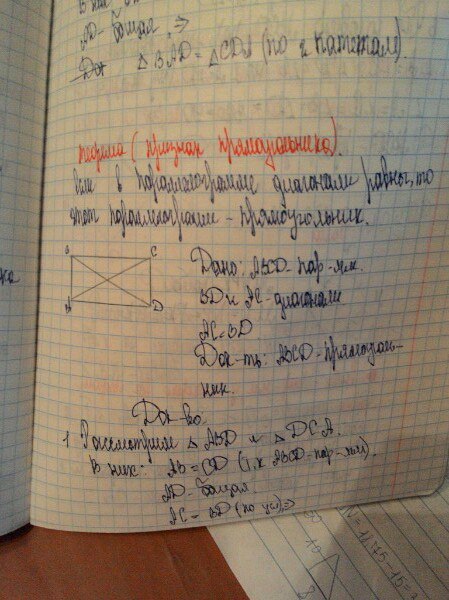 В них
AD - общая ⇒
Док
△ BAD = △ CDA (по 2 катетам).
Теорема (признак прямоугольника).
Если в параллелограмме диагонали равны, то
этот параллелограмм - прямоугольник.
B C
A D
Дано: ABCD - пар-мм.
BD и AC - диагонали
AC = BD
Док-ть: ABCD - прямоуголь-
ник.
Док-во.
1. Рассмотрим △ ABD и △ DCA.
В них: AB = CD (т.к ABCD - пар-мм).
AD - общая.
AC = BD (по усл) ⇒